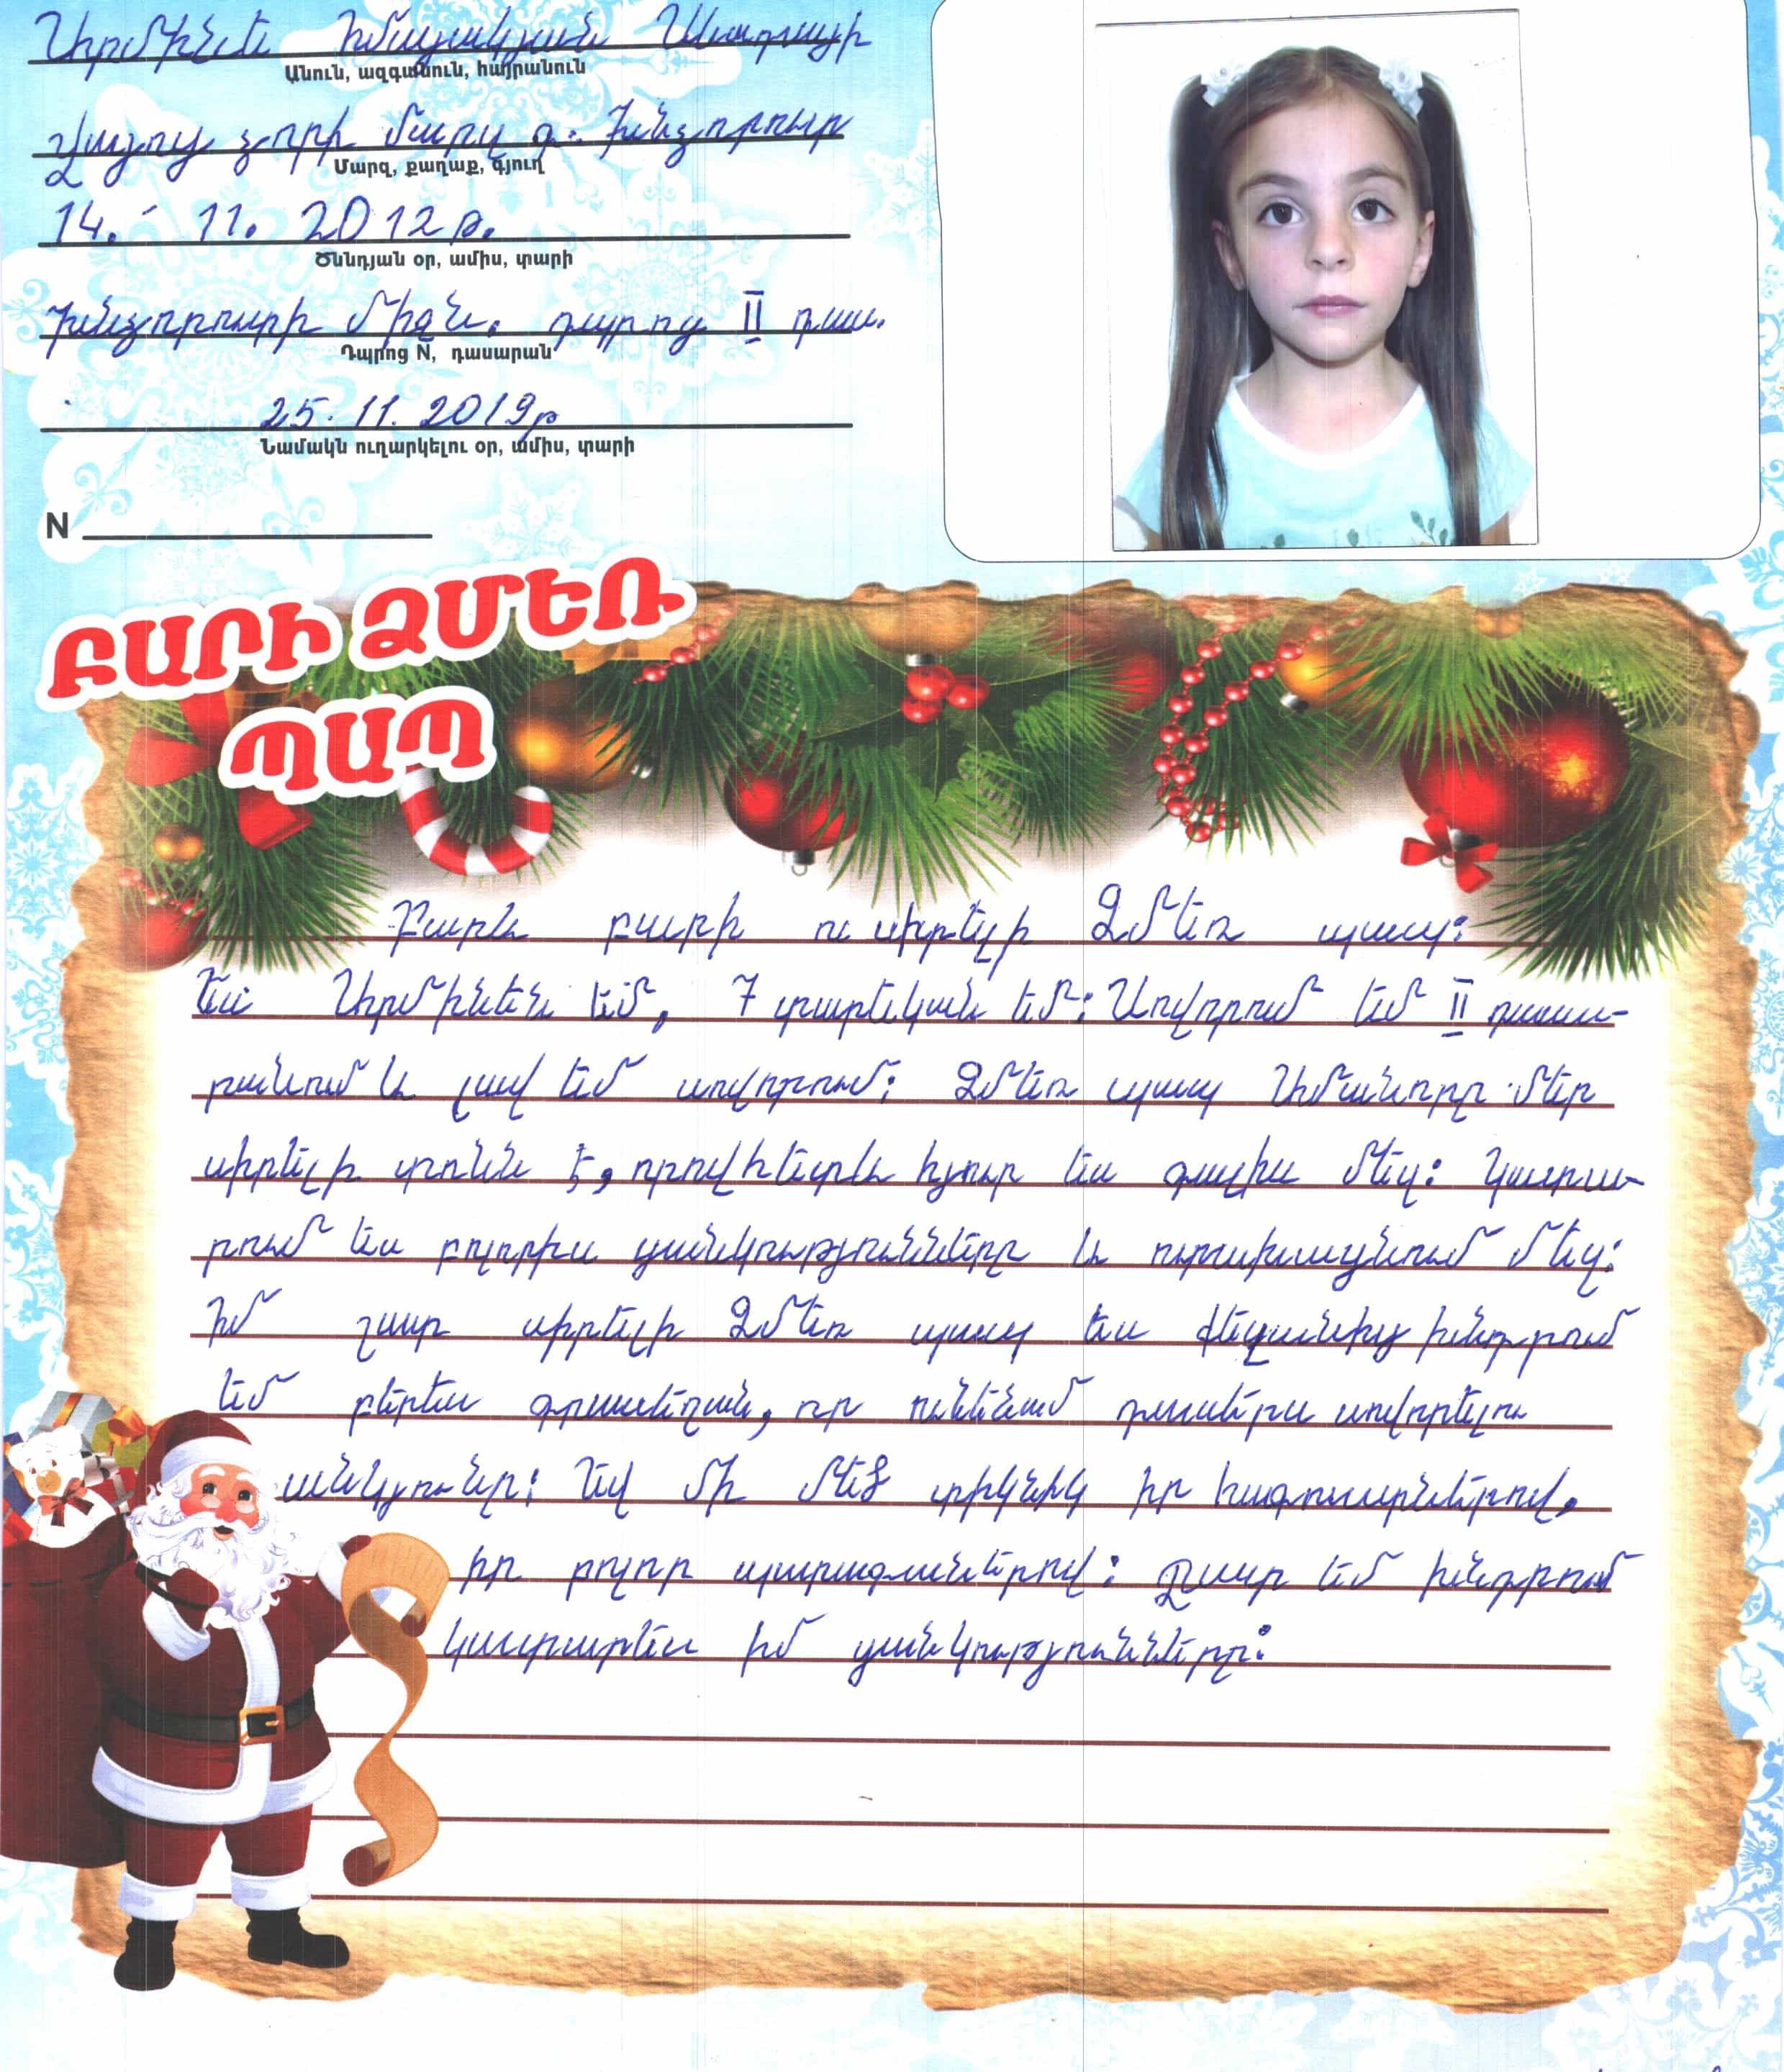 Արմինե Հմայակյան Սասունի
Անուն, ազգանուն, հայրանուն
Վայոց ձորի մարզ գ. Խնձորուտ
Մարզ, քաղաք, գյուղ
14. 11. 2012թ.
Ծննդյան օր, ամիս, տարի
Խնձորուտի միջն. դպրոց II դաս.
Դպրոց N, դասարան
25. 11. 2019թ
Նամակն ուղարկելու օր, ամիս, տարի
N
ԲԱՐԻ ՁՄԵՌ
ՊԱՊ
Բարև բարի ու սիրելի Ձմեռ պապ:
Ես Արմինեն եմ, 7 տարեկան եմ: Սովորում եմ II դասա-
րանում և լավ եմ սովորում: Ձմեռ պապ Ամանորը մեր
սիրելի տոնն է, որովհետև հյուր ես գալիս մեզ: Կատա-
րում ես բոլորիս ցանկությունները և ուրախացնում մեզ:
Իմ շատ սիրելի Ձմեռ պապ ես քեզանից խնդրում
եմ բերես գրասեղան, որ ունենամ դասերս սովորելու
անկյունը: Եվ մի մեծ տիկնիկ իր հագուստներով,
իր բոլոր պարագաներով: Շատ եմ խնդրում
կատարես իմ ցանկությունները: